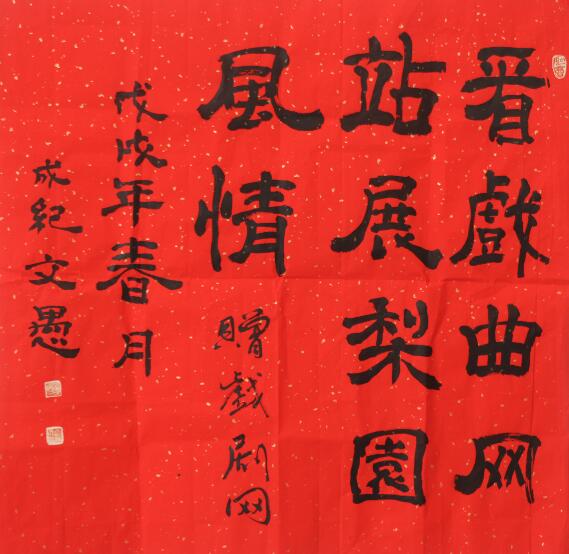 晋戲曲网
站展梨園
風情
贈戲剧网
戊戌年春月
成紀文愚